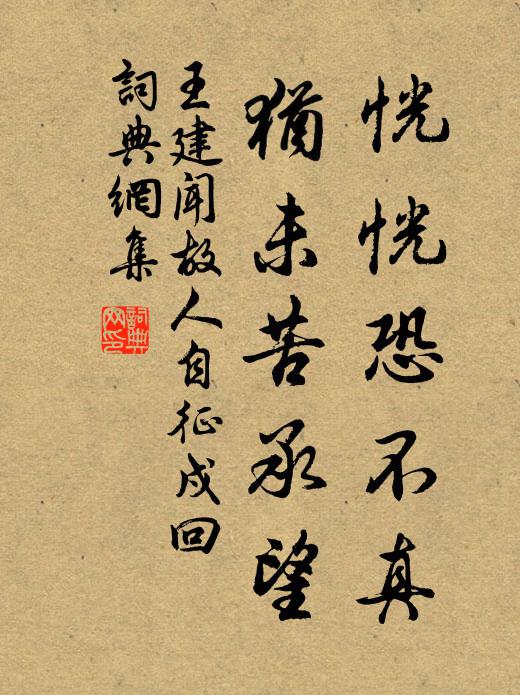 恍恍恐不真
猶未苦承望
王建闻故人自征戍回
詞典網集
詞典网印